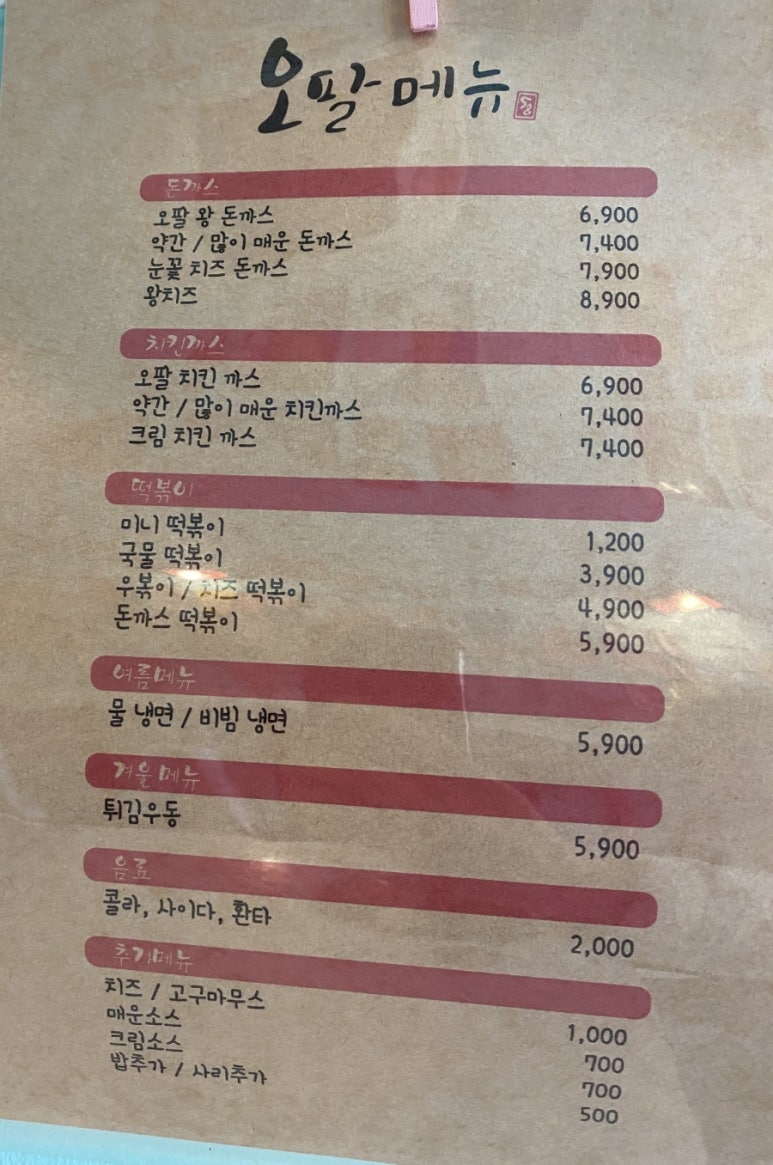 오팔 메뉴
돈까스
오팔 왕 돈까스 6,900
약간 / 많이 매운 돈까스 7,400
눈꽃 치즈 돈까스 7,900
왕치즈 8,900
치킨까스
오팔 치킨 까스 6,900
약간 / 많이 매운 치킨까스 7,400
크림 치킨 까스 7,400
떡볶이
미니 떡볶이 1,200
국물 떡볶이 3,900
우볶이 / 치즈 떡볶이 4,900
돈까스 떡볶이 5,900
여름메뉴
물 냉면 / 비빔 냉면 5,900
겨울메뉴
튀김우동 5,900
음료
콜라, 사이다, 환타 2,000
추가메뉴
치즈 / 고구마무스 1,000
매운소스 700
크림소스 700
밥추가 / 사리추가 500